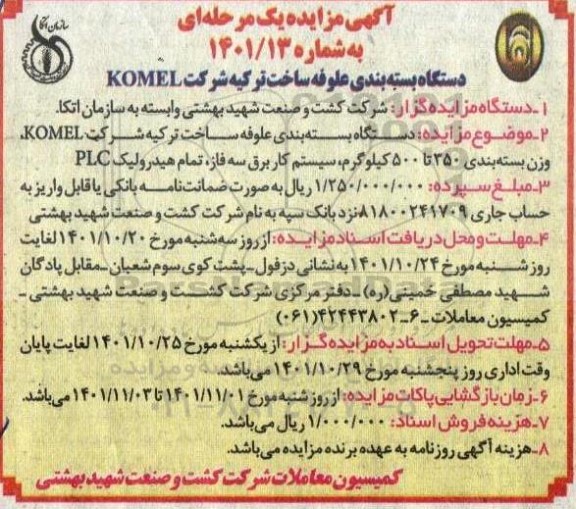 آگهی مزایده یک مرحله‌ای
به شماره ۱۴۰۱/۱۳
سازمان اتکا
دستگاه بسته‌بندی علوفه ساخت ترکیه شرکت KOMEL
۱ـ دستگاه مزایده‌گزار: شرکت کشت و صنعت شهید بهشتی وابسته به سازمان اتکا.
۲ـ موضوع مزایده: دستگاه بسته‌بندی علوفه ساخت ترکیه شرکت KOMEL،
وزن بسته‌بندی ۳۵۰ تا ۵۰۰ کیلوگرم، سیستم کار برق سه فاز، تمام هیدرولیک PLC
۳ـ مبلغ سپرده: ۱/۲۵۰/۰۰۰/۰۰۰ ریال به صورت ضمانت‌نامه بانکی یا قابل واریز به
حساب جاری ۸۱۸۰۰۲۴۱۷۰۹ نزد بانک سپه به نام شرکت کشت و صنعت شهید بهشتی
۴ـ مهلت و محل دریافت اسناد مزایده: از روز سه‌شنبه مورخ ۱۴۰۱/۱۰/۲۰ لغایت
روز شنبه مورخ ۱۴۰۱/۱۰/۲۴ به نشانی دزفول ـ پشت کوی سوم شعبان ـ مقابل پادگان
شهید مصطفی خمینی (ره) ـ دفتر مرکزی شرکت کشت و صنعت شهید بهشتی ـ
کمیسیون معاملات ـ ۶ـ۴۲۴۴۳۸۰۲ (۰۶۱)
۵ـ مهلت تحویل اسناد به مزایده‌گزار: از یکشنبه مورخ ۱۴۰۱/۱۰/۲۵ لغایت پایان
وقت اداری روز پنجشنبه مورخ ۱۴۰۱/۱۰/۲۹ می‌باشد.
۶ـ زمان بازگشایی پاکات مزایده: از روز شنبه مورخ ۱۴۰۱/۱۱/۰۱ تا ۱۴۰۱/۱۱/۰۳ می‌باشد.
۷ـ هزینه فروش اسناد: ۱/۰۰۰/۰۰۰ ریال می‌باشد.
۸ـ هزینه آگهی روزنامه به عهده برنده مزایده می‌باشد.
کمیسیون معاملات شرکت کشت و صنعت شهید بهشتی